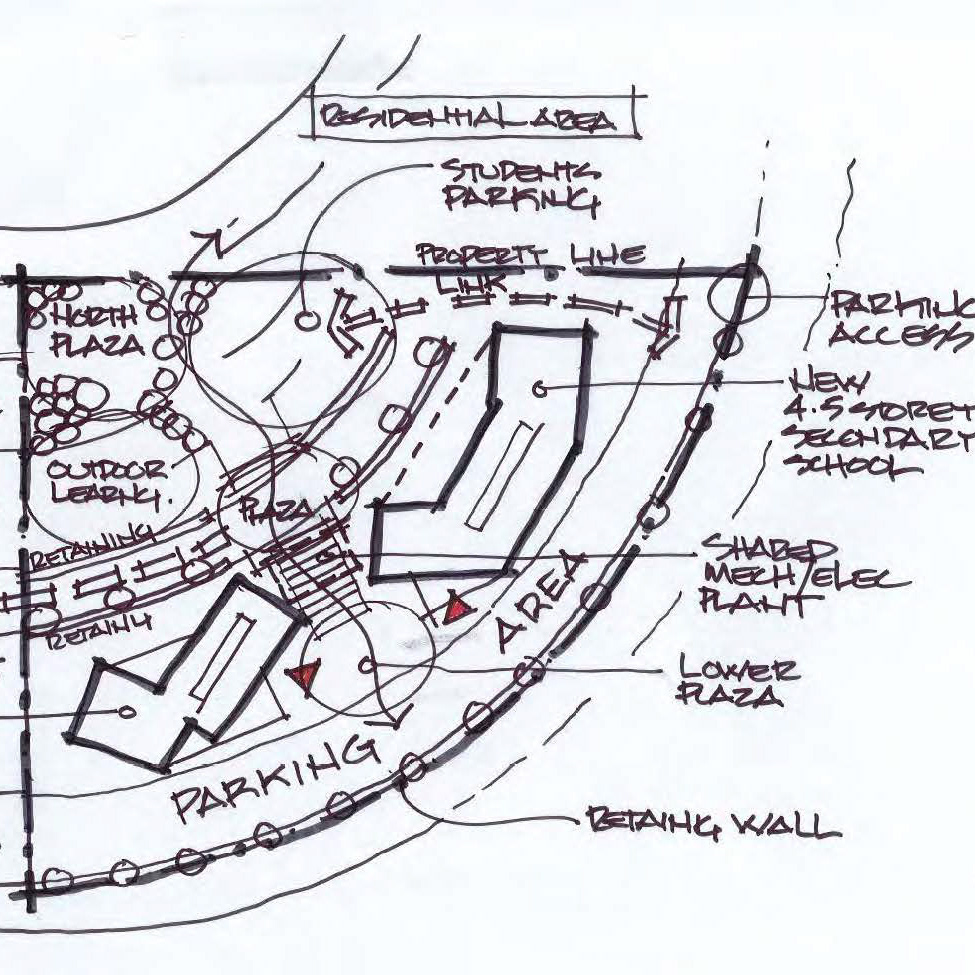 RESIDENTIAL AREA
STUDENTS
PARKING
PROPERTY LINE
LINK
NORTH
PLAZA
PARKING
ACCESS
NEW
4.5 STOREY
SECONDARY
SCHOOL
OUTDOOR
LEARNG.
PLAZA
RETAINING
RETAING
SHARED
MECH/ELEC
PLANT
LOWER
PLAZA
PARKING AREA
RETAING WALL